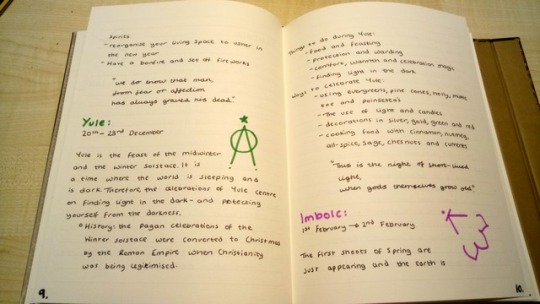 Spirits
- reorganise your living space to usher in
the new year
- Have a bonfire and set off fireworks
"We do know that man,
from fear or affection
has always graved his dead."
Yule:
20th - 23rd December
Yule is the feast of the midwinter
and the winter solstace. It is
a time where the world is sleeping and
is dark. Therefore the celebrations of Yule centre
on finding light in the dark - and protecting
yourself from the darkness.
History: the pagan celebrations of the
Winter solstace were converted to Christmas
by the Roman Empire when Christianity
was being legitimised.
9.
Things to do during Yule:
- food and feasting
- protection and warding
- comfort, warmth and celebration magic
- finding light in the dark
Ways to celebrate Yule:
- using evergreens, pine cones, holly,
and poinsettia
- The use of light and candles
- decorations in silver, gold, green and red
- cooking food with cinnamon, nutmeg,
all-spice, sage, chestnuts and
"This is the night of short-lived
light,
when gods themselves grow old"
Imbolc:
1st February → 2nd February
The first shoots of Spring are
just appearing and the earth is
10.